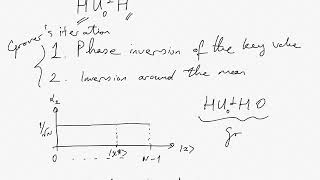 H U₀⊥ H
Grover's iteration
1. Phase inversion of the key value
2. Inversion around the mean
αₓ
1/√N
0 ..... |x*> N-1 |x>
HU₀⊥HO
gr